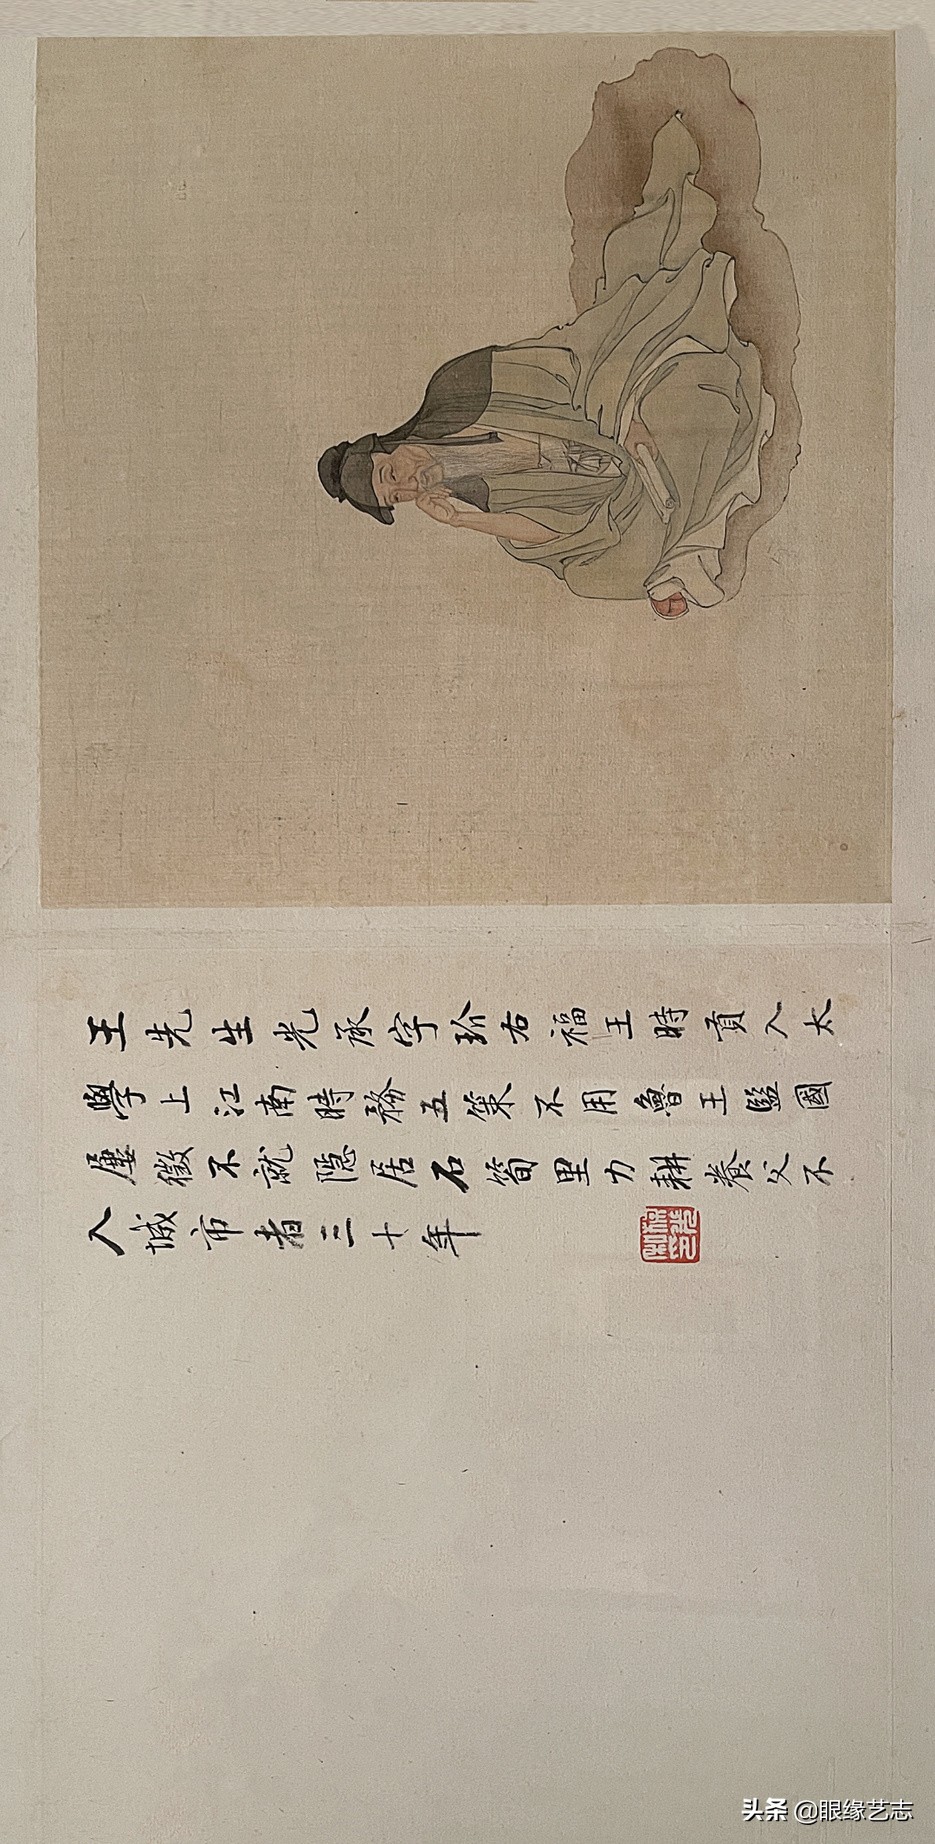 王先生光承字玠右福王時貢入太
學上江南時務五策不用魯王監國
屢徵不就隱居石筍里力耕養父不
入城市者三十年
头条 @眼缘艺志